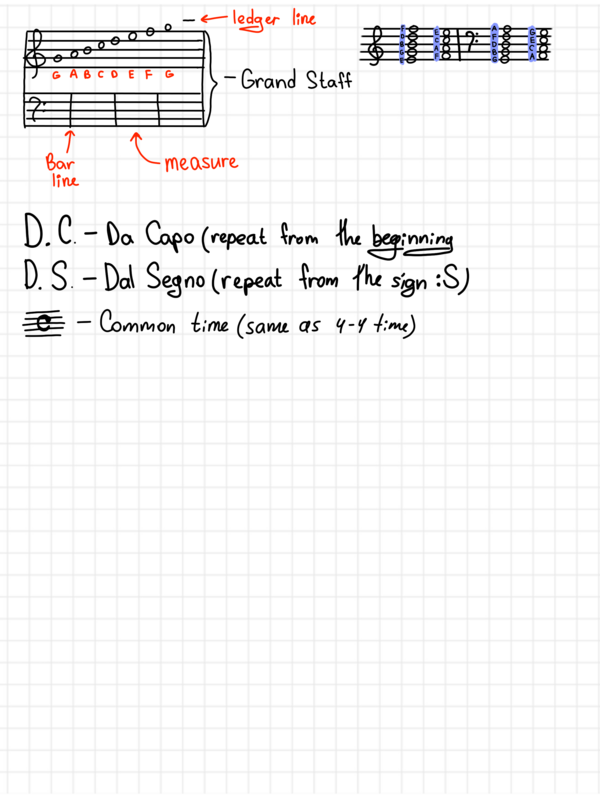 ledger line
G A B C D E F G
- Grand Staff
Bar
line
measure
F
D
B
G
E
E
C
A
F
A
F
D
B
G
G
E
C
A
D.C. - Da Capo (repeat from the beginning
D.S. - Dal Segno (repeat from the sign :S)
C - Common time (same as 4-4 time)